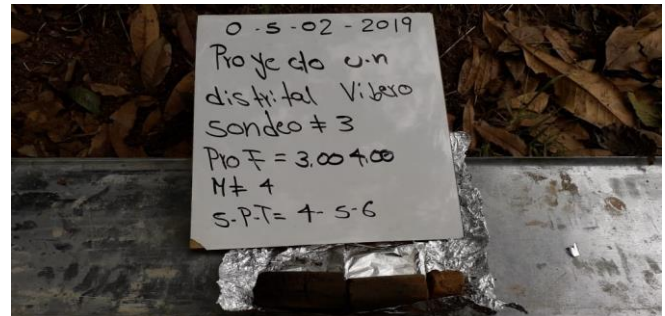 0-5-02-2019
Proyecto U.n
distrital Vibero
Sondeo # 3
Prof = 3.00 4.00
M# 4
S-P-T= 4-5-6